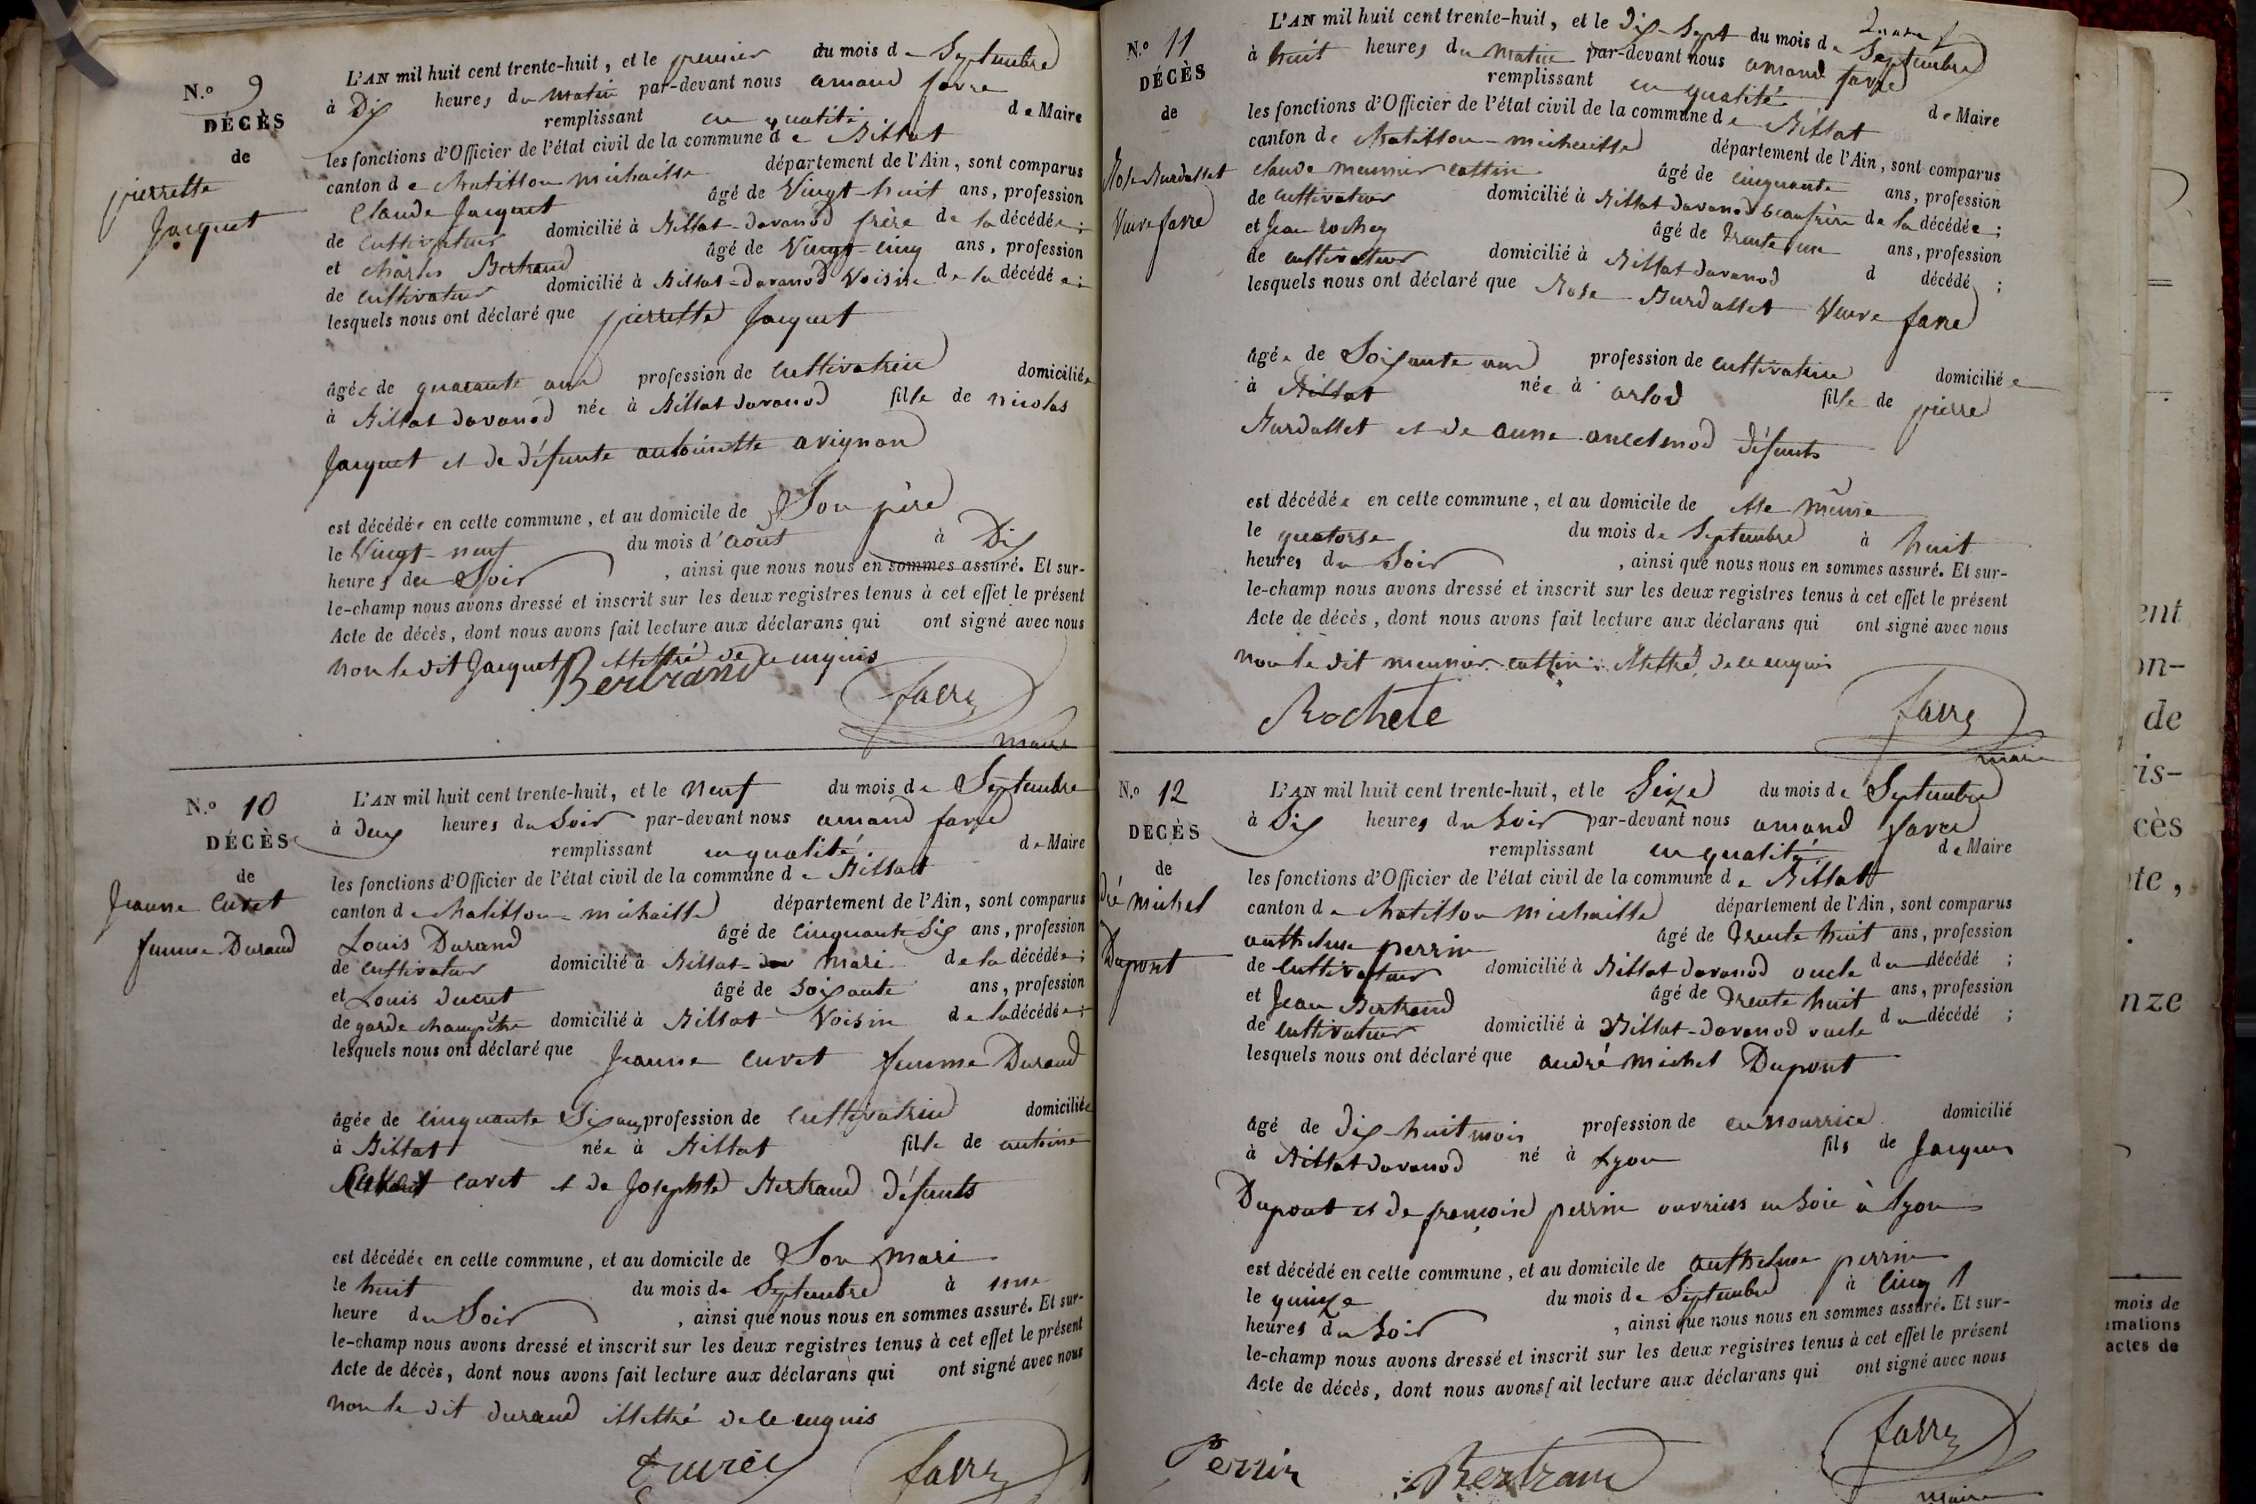 N.º 9
DÉCÈS
de
pierrette
Jacquet
L'AN mil huit cent trente-huit, et le premier du mois de Septembre
à Dix heures du matin par-devant nous amand favre
remplissant en qualité de Maire
les fonctions d'Officier de l'état civil de la commune de Billat
canton de chatillon michaille département de l'Ain, sont comparus
Claude Jacquet âgé de Vingt-huit ans, profession
de cultivateur domicilié à Billat-davanod frère de la décédée;
et charles Bertrand âgé de Vingt-cinq ans, profession
de cultivateur domicilié à Billat-davanod Voisin de la décédée;
lesquels nous ont déclaré que pierrette Jacquet
âgée de quarante ans profession de cultivatrice domiciliée
à Billat davanod née à Billat davanod fille de nicolas
Jacquet et de défunte antoinette avignon
est décédée en cette commune, et au domicile de Son père
le Vingt-neuf du mois d'août à Dix
heures du Soir, ainsi que nous nous en sommes assuré. Et sur-
le-champ nous avons dressé et inscrit sur les deux registres tenus à cet effet le présent
Acte de décès, dont nous avons fait lecture aux déclarans qui ont signé avec nous
non le dit Jacquet illettré de ce enquis
Bertrand
favre
maire
N.º 10
DÉCÈS
de
Jeanne Curet
femme Durand
L'AN mil huit cent trente-huit, et le neuf du mois de Septembre
à deux heures du Soir par-devant nous amand favre
remplissant en qualité de Maire
les fonctions d'Officier de l'état civil de la commune de Billat
canton de chatillon-michaille département de l'Ain, sont comparus
Louis Durand âgé de cinquante Six ans, profession
de cultivateur domicilié à Billat mari de la décédée;
et Louis ducret âgé de Soixante ans, profession
de garde champêtre domicilié à Billat Voisin de la décédée;
lesquels nous ont déclaré que Jeanne curet femme Durand
âgée de cinquante Six ans profession de cultivatrice domiciliée
à Billat née à Billat fille de antoine
curet et de Josephte Bertrand défunts
est décédée en cette commune, et au domicile de Son mari
le huit du mois de Septembre à une
heure du Soir, ainsi que nous nous en sommes assuré. Et sur-
le-champ nous avons dressé et inscrit sur les deux registres tenus à cet effet le présent
Acte de décès, dont nous avons fait lecture aux déclarans qui ont signé avec nous
non le dit durand illettré de ce enquis
favre
N.º 11
DÉCÈS
de
Rose Burdallet
Veuve favre
L'AN mil huit cent trente-huit, et le dix-Sept du mois de Septembre
à huit heures du matin par-devant nous amand favre
remplissant en qualité de Maire
les fonctions d'Officier de l'état civil de la commune de Billat
canton de chatillon-michaille département de l'Ain, sont comparus
claude meunier cattin âgé de cinquante ans, profession
de cultivateur domicilié à Billat davanod beaufrère de la décédée;
et Jean rochey âgé de trente un ans, profession
de cultivateur domicilié à Billat davanod d décédé;
lesquels nous ont déclaré que Rose Burdallet Veuve favre
âgée de Soixante ans profession de cultivatrice domiciliée
à Billat née à arlod fille de pierre
Burdallet et de anne ancelmod défunts
est décédée en cette commune, et au domicile de elle même
le quatorse du mois de Septembre à huit
heures du Soir, ainsi que nous nous en sommes assuré. Et sur-
le-champ nous avons dressé et inscrit sur les deux registres tenus à cet effet le présent
Acte de décès, dont nous avons fait lecture aux déclarans qui ont signé avec nous
non le dit meunier cattin illettré de ce enquis
favre
maire
N.º 12
DÉCÈS
de
dré michel
Dupont
L'AN mil huit cent trente-huit, et le Seize du mois de Septembre
à Six heures du Soir par-devant nous amand favre
remplissant en qualité de Maire
les fonctions d'Officier de l'état civil de la commune de Billat
canton de chatillon michaille département de l'Ain, sont comparus
anthelme perrin âgé de trente huit ans, profession
de cultivateur domicilié à Billat davanod oncle du décédé;
et Jean Bertrand âgé de trente huit ans, profession
de cultivateur domicilié à Billat-davanod oncle du décédé;
lesquels nous ont déclaré que andré michel Dupont
âgé de dix-huit mois profession de en nourrice domicilié
à Billat davanod né à Lyon fils de Jacques
Dupont et de françoise perrin ouvriers en Soie à Lyon
est décédé en cette commune, et au domicile de anthelme perrin
le quinze du mois de Septembre à cinq
heures du Soir, ainsi que nous nous en sommes assuré. Et sur-
le-champ nous avons dressé et inscrit sur les deux registres tenus à cet effet le présent
Acte de décès, dont nous avons fait lecture aux déclarans qui ont signé avec nous
Perrin
Bertrand
favre
maire
ent
on-
de
ris-
cès
te,
nze
mois de
mations
actes de